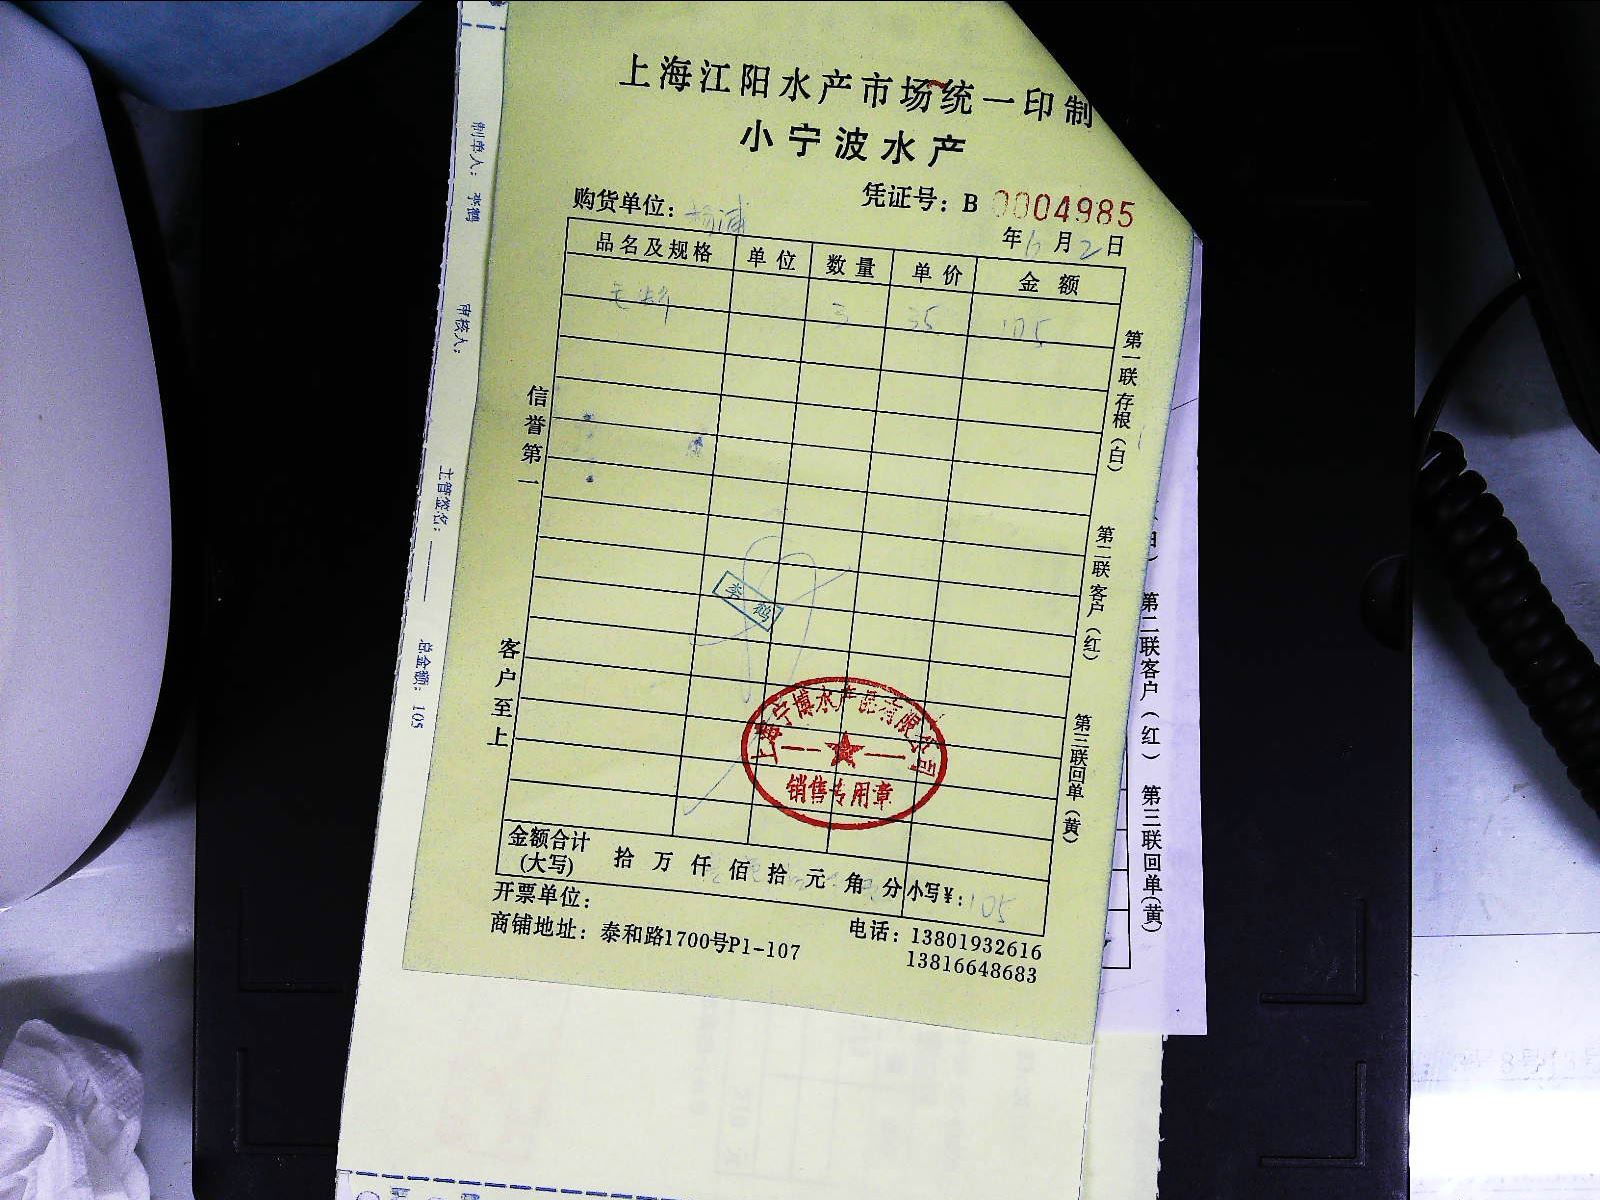 上海江阳水产市场统一印制
小宁波水产
凭证号：B 0004985
购货单位：杨浦
年6月2日
品名及规格 单位 数量 单价 金额
3 35 105
信誉第一
客户至上
第一联存根（白）
第二联客户（红）
第三联回单（黄）
李鹤
上海宁博水产品有限公司
销售专用章
金额合计（大写） 拾 万 仟 佰 拾 元 角 分 小写¥：105
开票单位：
商铺地址：泰和路1700号P1-107
电话：13801932616
13816648683
制单人：李鹤
审核人：
主管签名：
总金额：105
第二联客户（红）
第三联回单（黄）